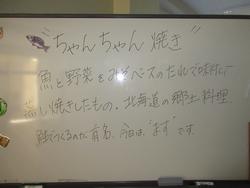 "ちゃんちゃん焼き"
魚と野菜をみそベースのたれで味付け
蒸し焼きしたもの。北海道の郷土料理。
鮭でつくるのが有名。今日は"ます"です。